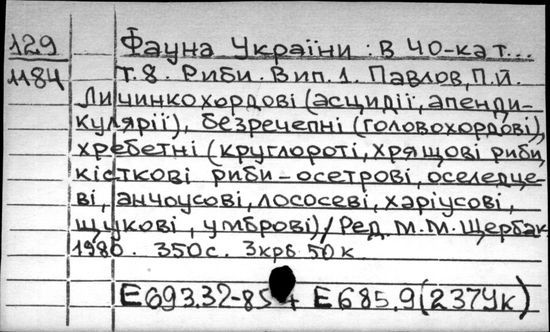 129 Фауна України: В 40-ка т...
1184 Т.8. Риби. Вип.1. Павлов, П.Й.
Личинкохордові (асцидії, апенди-
кулярії), безречепні (головохордові),
хребетні (круглороті, хрящові риби,
кісткові риби - осетрові, оселедце-
ві, анчоусові, лососеві, харіусові,
щукові, умброві)/Ред. М.М. Щербак
1980. 350с. 3крб. 50к.
Е693.32-85 Е685.9(237Ук)